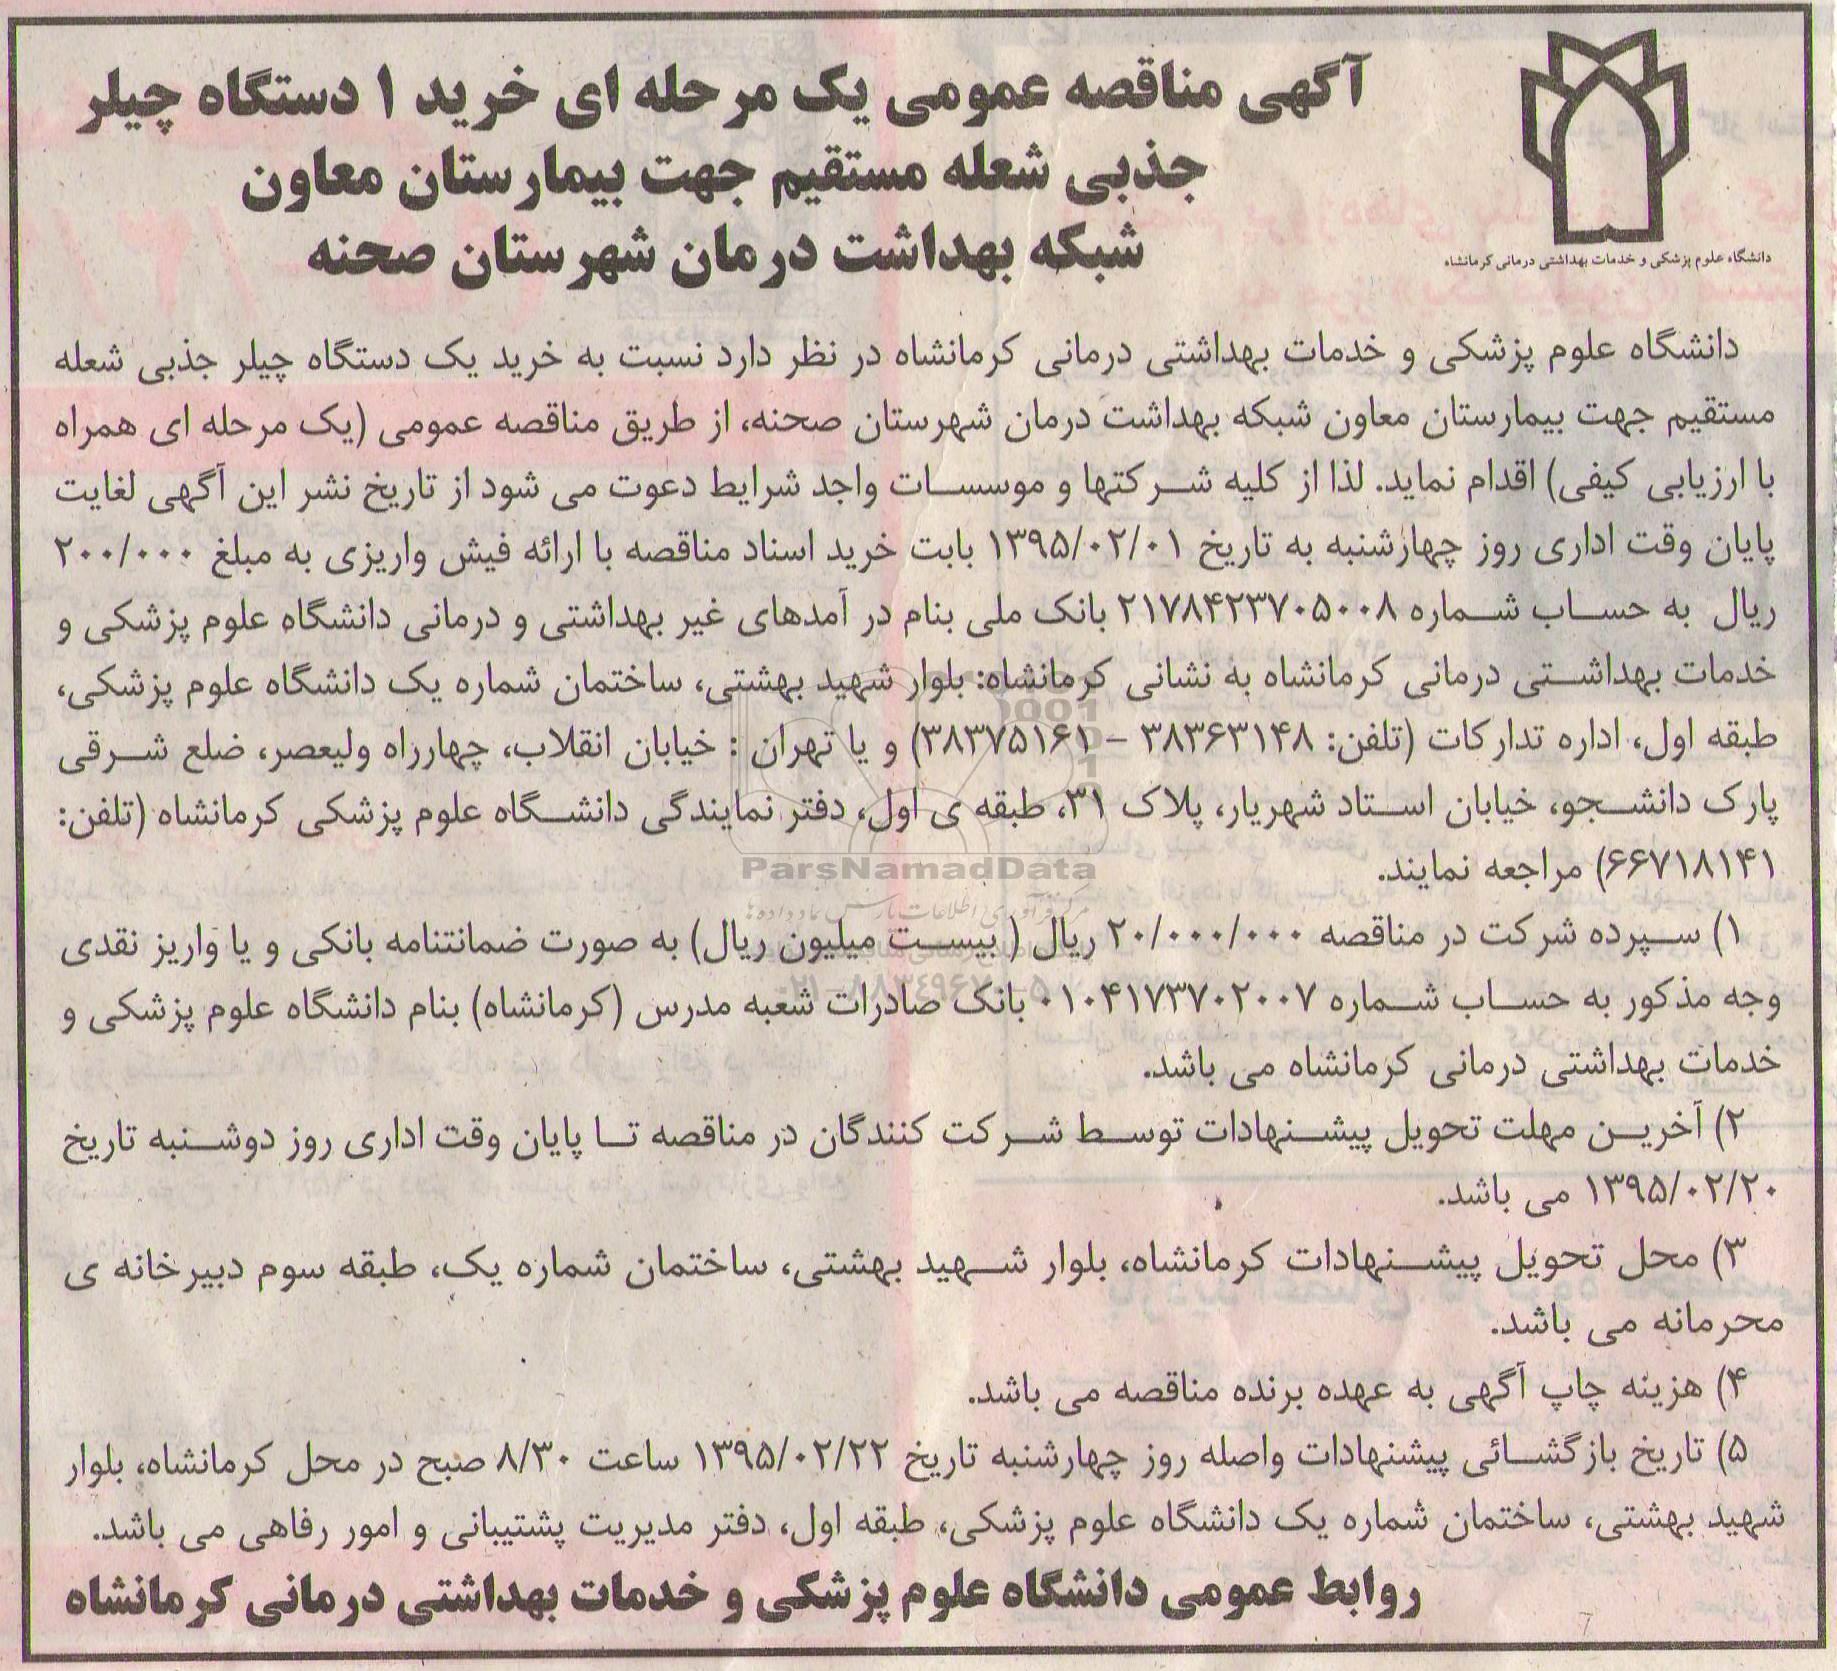 آگهی مناقصه عمومی یک مرحله ای خرید ۱ دستگاه چیلر
جذبی شعله مستقیم جهت بیمارستان معاون
شبکه بهداشت درمان شهرستان صحنه
دانشگاه علوم پزشکی و خدمات بهداشتی درمانی کرمانشاه
دانشگاه علوم پزشکی و خدمات بهداشتی درمانی کرمانشاه در نظر دارد نسبت به خرید یک دستگاه چیلر جذبی شعله
مستقیم جهت بیمارستان معاون شبکه بهداشت درمان شهرستان صحنه، از طریق مناقصه عمومی (یک مرحله ای همراه
با ارزیابی کیفی) اقدام نماید. لذا از کلیه شرکتها و موسسات واجد شرایط دعوت می شود از تاریخ نشر این آگهی لغایت
پایان وقت اداری روز چهارشنبه به تاریخ ۱۳۹۵/۰۲/۰۱ بابت خرید اسناد مناقصه با ارائه فیش واریزی به مبلغ ۲۰۰/۰۰۰
ریال به حساب شماره ۲۱۷۸۴۲۳۷۰۵۰۰۸ بانک ملی بنام در آمدهای غیر بهداشتی و درمانی دانشگاه علوم پزشکی و
خدمات بهداشتی درمانی کرمانشاه به نشانی کرمانشاه: بلوار شهید بهشتی، ساختمان شماره یک دانشگاه علوم پزشکی،
طبقه اول، اداره تدارکات (تلفن: ۳۸۳۶۳۱۴۸ – ۳۸۳۷۵۱۶۱) و یا تهران : خیابان انقلاب، چهارراه ولیعصر، ضلع شرقی
پارک دانشجو، خیابان استاد شهریار، پلاک ۳۱، طبقه ی اول، دفتر نمایندگی دانشگاه علوم پزشکی کرمانشاه (تلفن:
۶۶۷۱۸۱۴۱) مراجعه نمایند.
ParsNamadData
مرکز فرآوری اطلاعات پارس نماد داده ها
۱) سپرده شرکت در مناقصه ۲۰/۰۰۰/۰۰۰ ریال ( بیست میلیون ریال) به صورت ضمانتنامه بانکی و یا واریز نقدی
وجه مذکور به حساب شماره ۰۱۰۴۱۷۳۷۰۲۰۰۷ بانک صادرات شعبه مدرس (کرمانشاه) بنام دانشگاه علوم پزشکی و
خدمات بهداشتی درمانی کرمانشاه می باشد.
۲) آخرین مهلت تحویل پیشنهادات توسط شرکت کنندگان در مناقصه تا پایان وقت اداری روز دوشنبه تاریخ
۱۳۹۵/۰۲/۲۰ می باشد.
۳) محل تحویل پیشنهادات کرمانشاه، بلوار شهید بهشتی، ساختمان شماره یک، طبقه سوم دبیرخانه ی
محرمانه می باشد.
۴) هزینه چاپ آگهی به عهده برنده مناقصه می باشد.
۵) تاریخ بازگشائی پیشنهادات واصله روز چهارشنبه تاریخ ۱۳۹۵/۰۲/۲۲ ساعت ۸/۳۰ صبح در محل کرمانشاه، بلوار
شهید بهشتی، ساختمان شماره یک دانشگاه علوم پزشکی، طبقه اول، دفتر مدیریت پشتیبانی و امور رفاهی می باشد.
روابط عمومی دانشگاه علوم پزشکی و خدمات بهداشتی درمانی کرمانشاه